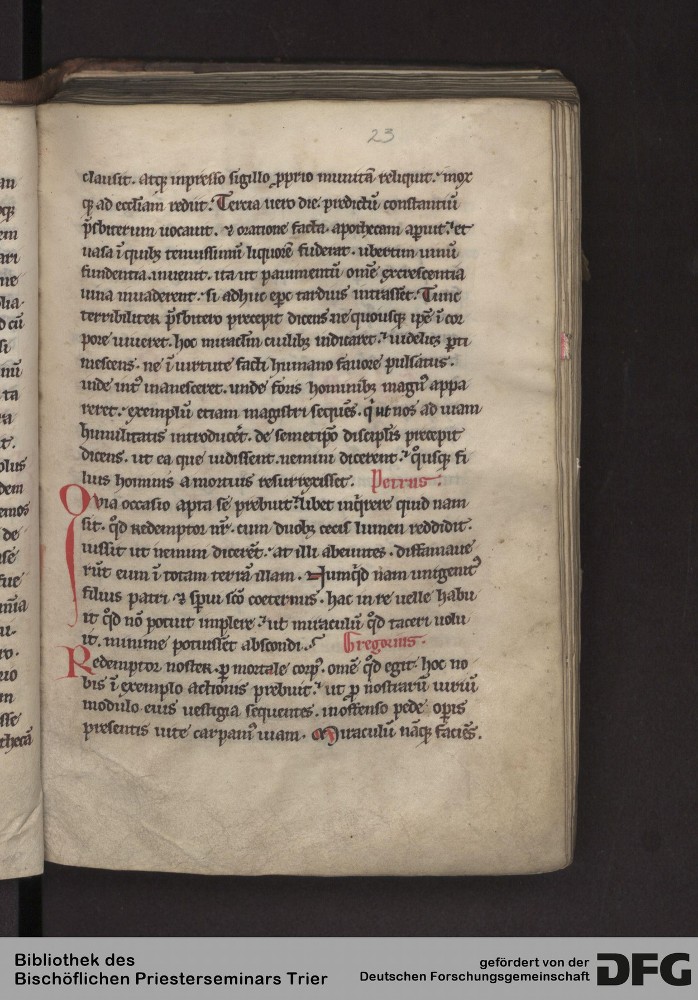 23
clausit. atq; inpresso sigillo ꝓprio munitā reliquit. mox
q; ad eccl̄iam rediit. Tercia uero die. predictū constantiū
p̄sbiterum uocauit. ⁊ oratione facta. apothecam aperuit. et
uasa ī quib; tenuissimū liquorē fuderat. ubertim uinū
fundentia inuenit. ita ut pauimentū om̄e excrescentia
uina inuaderent. si adhuc ep̄c tardius intrasset. Tunc
terribiliter p̄sbitero precepit dicens. ne quousq; ip̄e ī cor
pore uiueret. hoc miraclm̄ cuilib; indicaret. uidelic; ꝑti
mescens. ne ī uirtute facti humano fauore pulsatus.
inde int᷒ inanesceret. unde foris hominib; magn᷒ appa
reret. exemplū etiam magistri sequēs. q̇ ut nos ad uiam
humilitatis introducer̄t. de semetip̄o discipl̄is precepit
dicens. ut ea que uidissent. nemini dicerent. quousq; fi
lius hominis a mortuis resurrexisset. Petrus.
Quia occasio apta se prebuit. libet inq̇rere quid nam
sit. qd̄ redemptor nr̄. cum duob; cecis lumen reddidit.
iussit ut nemini dicerēt. at illi abeuntes. diffamaue
rūt eum ī totam terrā illam. Numq̇d nam unigenit᷒
filius patri ⁊ sp̄ui sc̄o coeternus. hac in re uelle habu
it qd̄ nō potuit implere. ut miraculū qd̄ taceri uolu
it. minime potuisset abscondi. Gregorius.
Redemptor noster. ꝑ mortale corp᷒. om̄e qd̄ egit. hoc no
bis ī exemplo actionis prebuit. ut ꝓ nostrarū uiriū
modulo eius uestigia sequentes. inoffenso pede opis
presentis uite carpam᷒ uiam. Miraculū nāq; faciēs.
Bibliothek des
Bischöflichen Priesterseminars Trier
gefördert von der
Deutschen Forschungsgemeinschaft
DFG